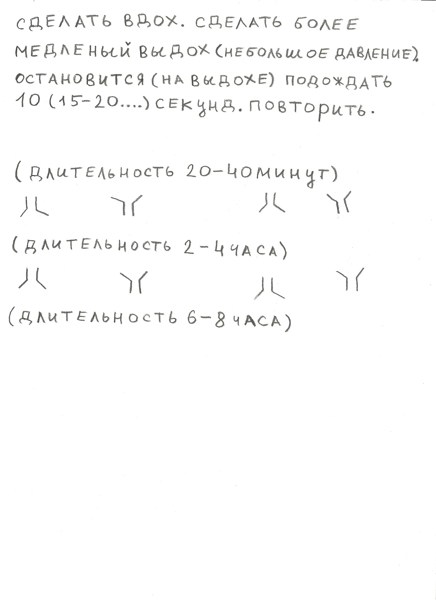 СДЕЛАТЬ ВДОХ. СДЕЛАТЬ БОЛЕЕ
МЕДЛЕНЫЙ ВЫДОХ (НЕБОЛЬШОЕ ДАВЛЕНИЕ).
ОСТАНОВИТСЯ (НА ВЫДОХЕ) ПОДОЖДАТЬ
10 (15-20....) СЕКУНД. ПОВТОРИТЬ.
(ДЛИТЕЛЬНОСТЬ 20-40 МИНУТ)
(ДЛИТЕЛЬНОСТЬ 2-4 ЧАСА)
(ДЛИТЕЛЬНОСТЬ 6-8 ЧАСА)